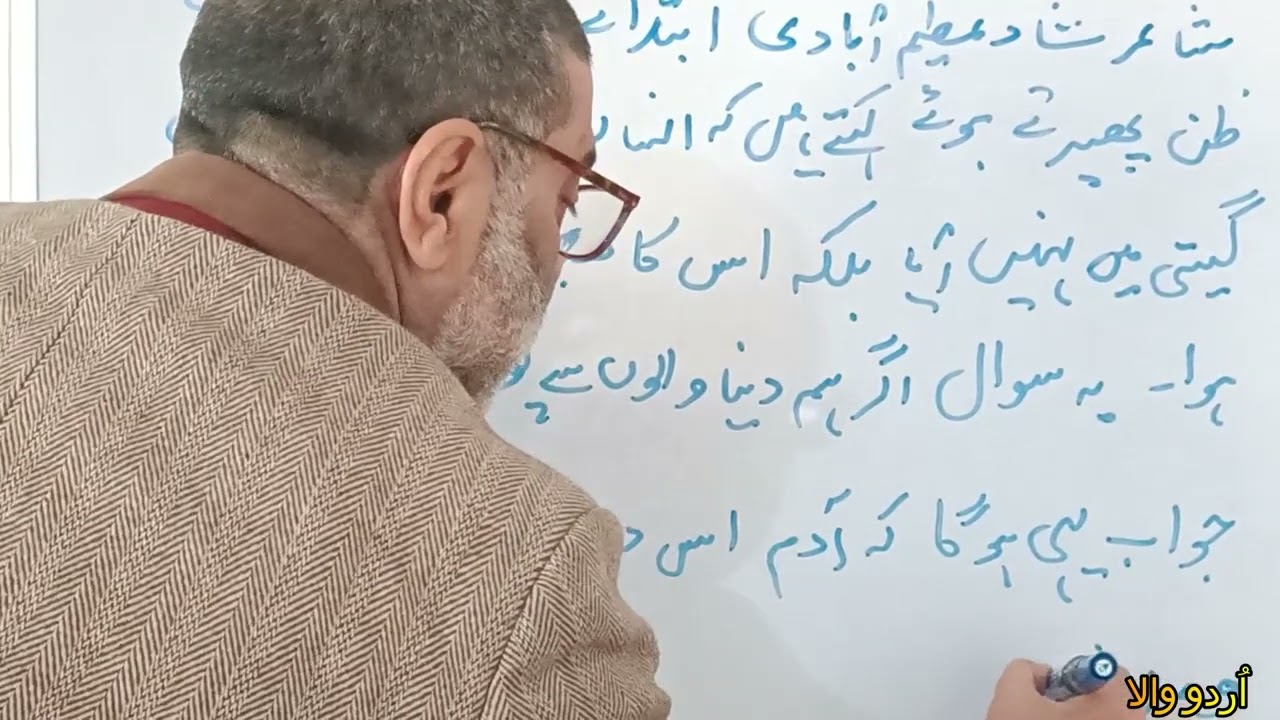 شاعر شاد عظیم آبادی ابتدائے
ظن پھیرتے ہوئے کہتے ہیں کہ انسان
گیتی میں نہیں آیا بلکہ اس کا
ہوا۔ یہ سوال اگر ہم دنیا والوں سے
جواب یہی ہوگا کہ آدم اس
اُردو والا